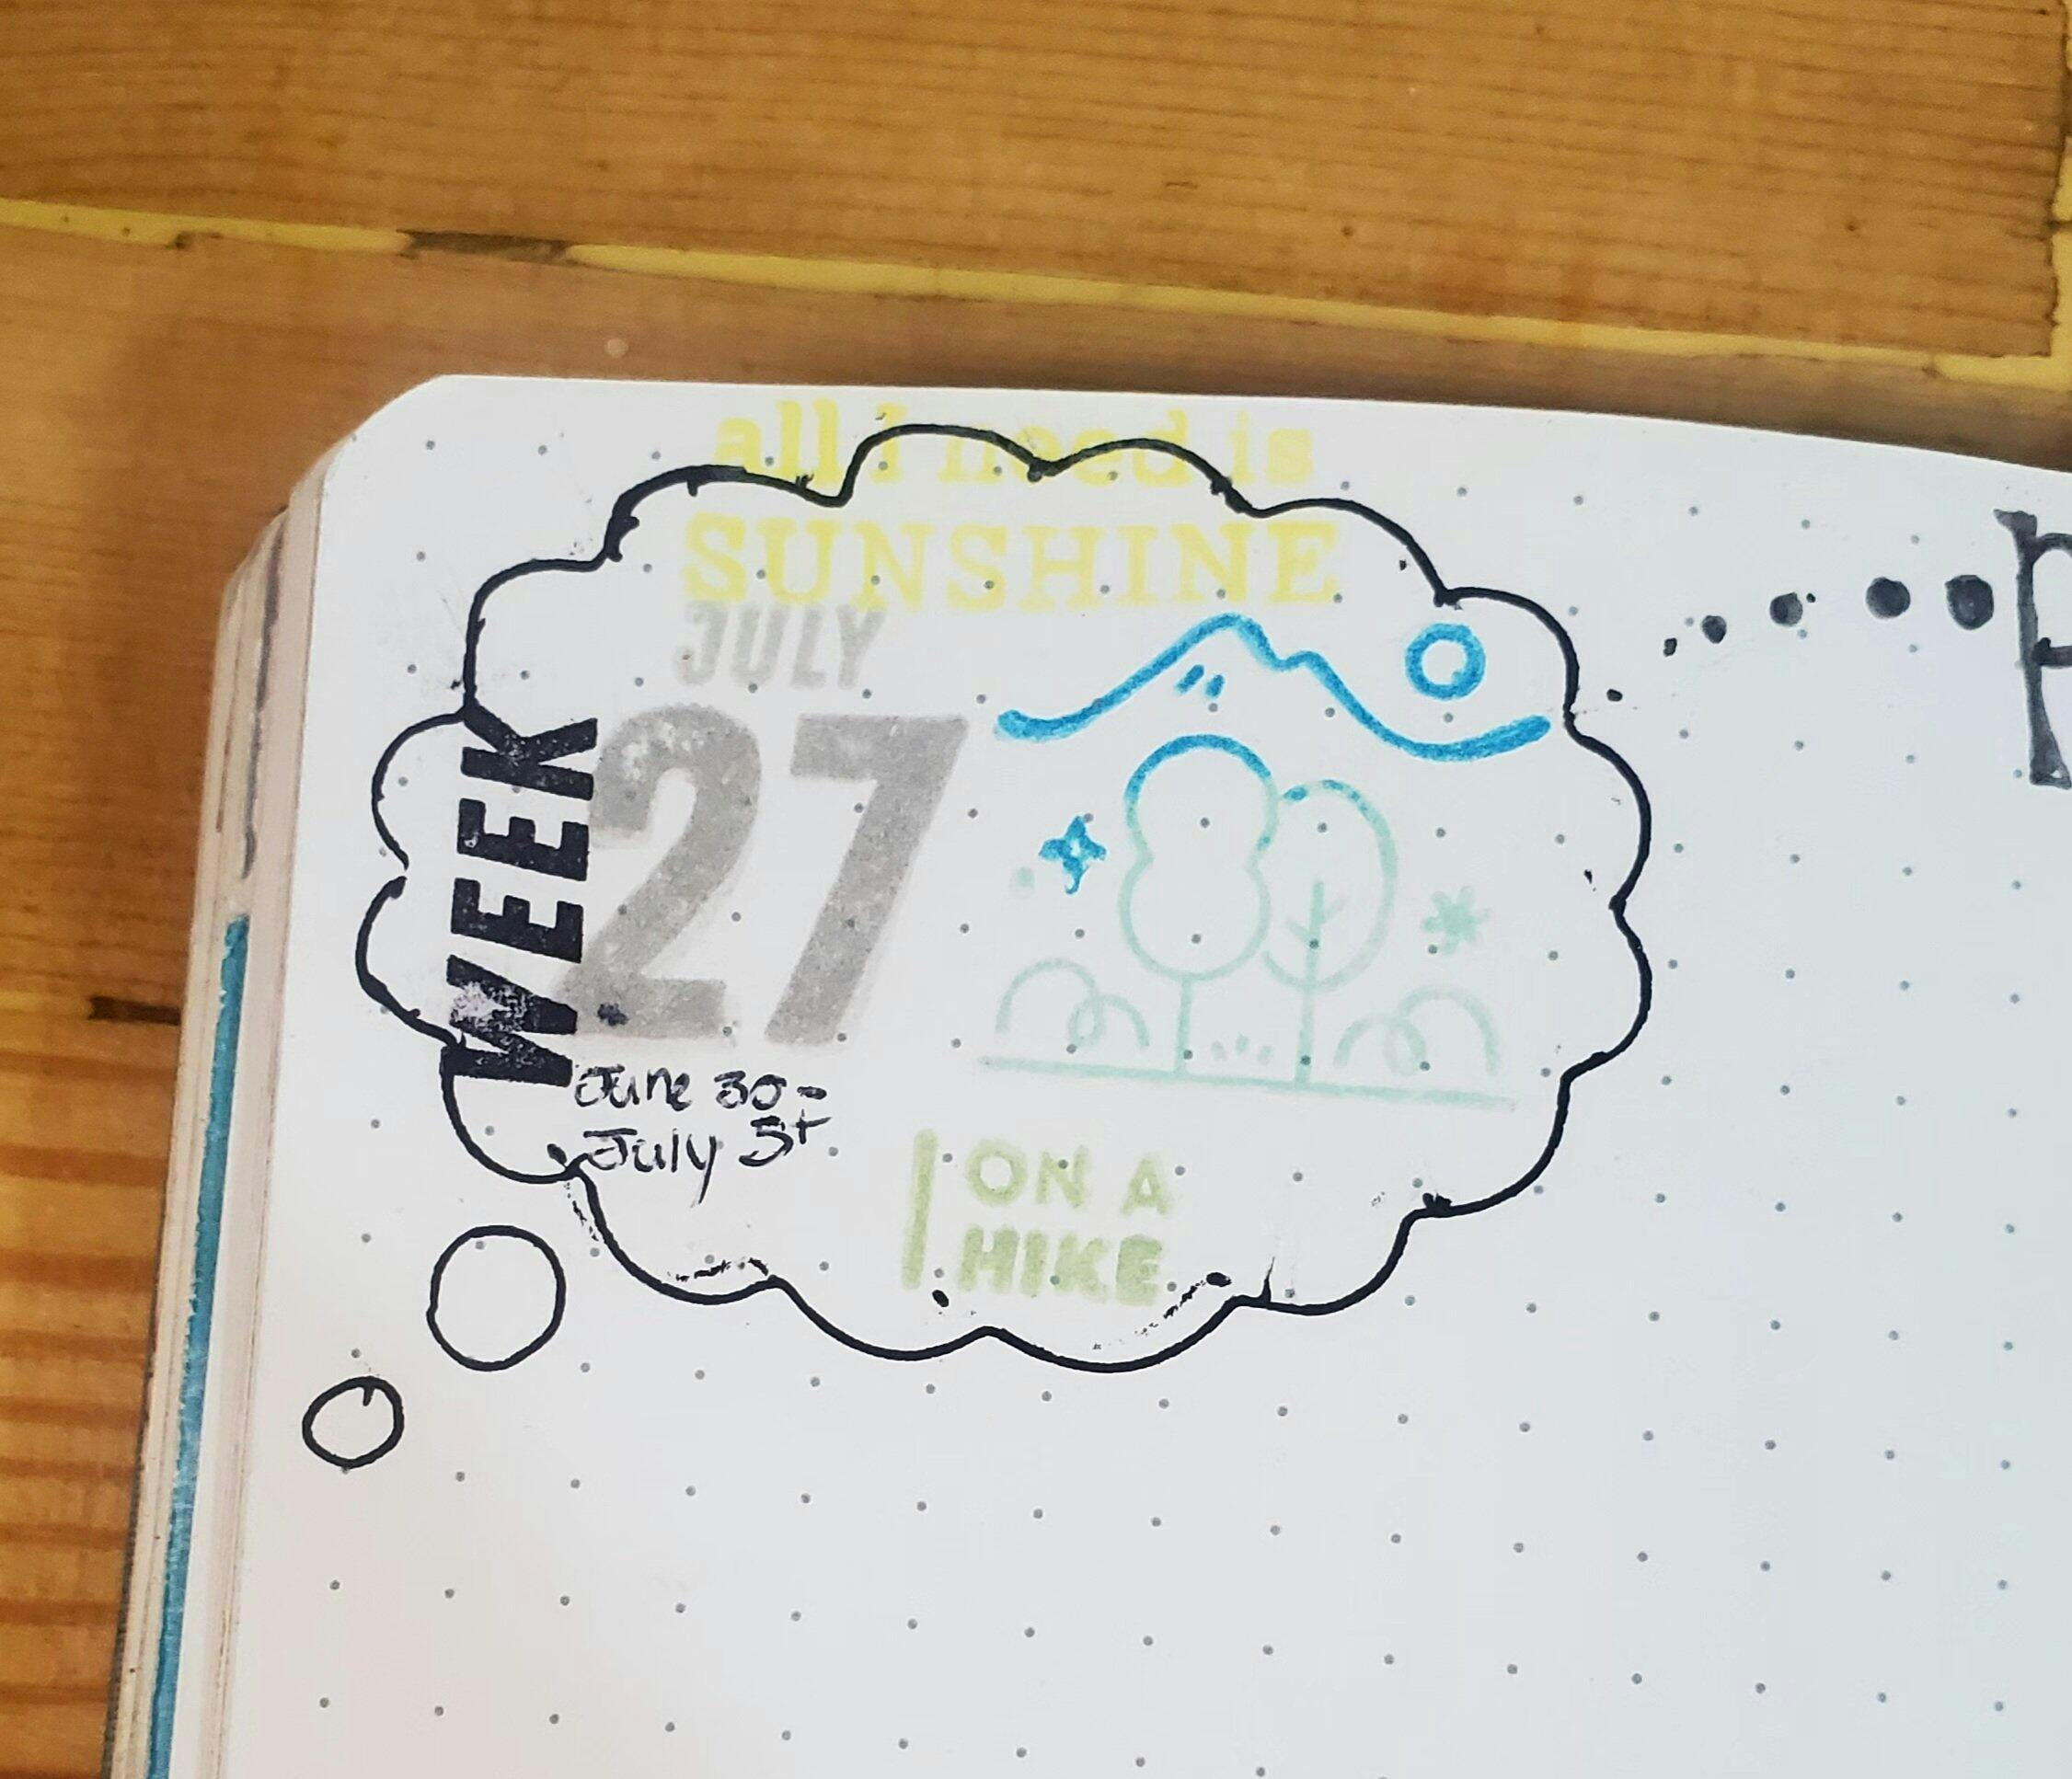 all I need is
SUNSHINE
JULY
WEEK
27
June 30-
July 5
ON A
HIKE